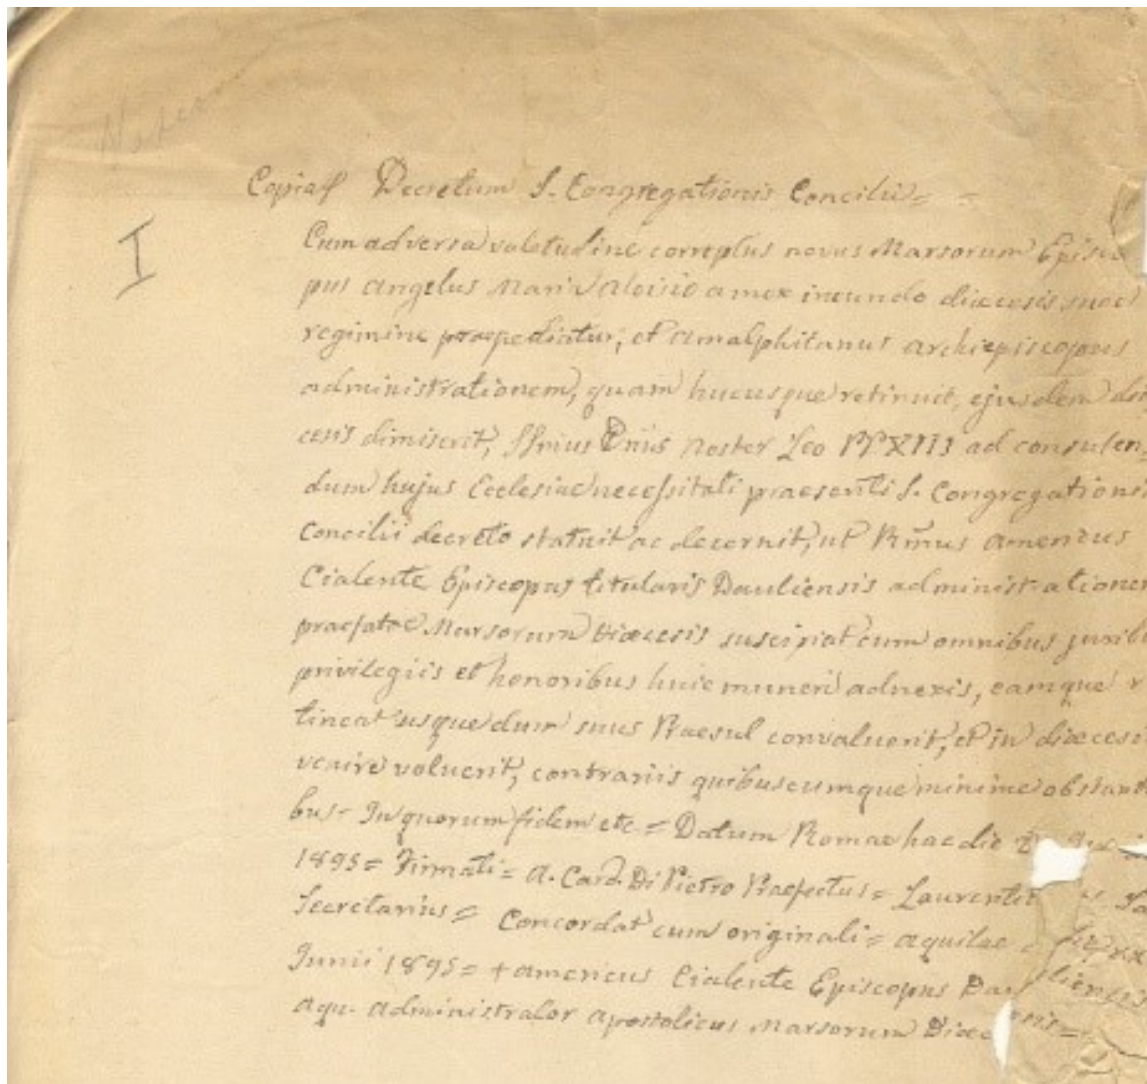 I
Copia Decretum S. Congregationis Concilii =
Cum adversa valetudine correptus novus Marsorum Episco
pus Angelus Maria Aloisio a mox ineundo diœcesis suae
regimine praepediatur, et Amalphitanus archiepiscopus
administrationem, quam hucusque retinuit, ejusdem diœ
cesis dimiserit, SSmus Dnus Noster Leo PP XIII ad consulen
dum hujus Ecclesiae necessitati praesenti S. Congregationis
Concilii decreto statuit ac decernit, ut Rm̃us Americus
Cialente Episcopus titularis Dauliensis administ-ationem
praefatae Marsorum Diœcesis suscipiat cum omnibus juribu
privilegiis et honoribus huic muneri adnexis, eamque r
tineat usque dum suus Praesul convaluerit, et in diœcesi
venire voluerit, contrariis quibuscumque minime obstanti
bus - In quorum fidem etc = Datum Romae hac die
1895 = Firmati = A. Card. Di Pietro Praefectus =
Secretarius = Concordat cum originali = Aquilae
Junii 1895 = + Americus Cialente Episcopus Dauliensis
aqu. Administrator Apostolicus Marsorum Diœc esis =